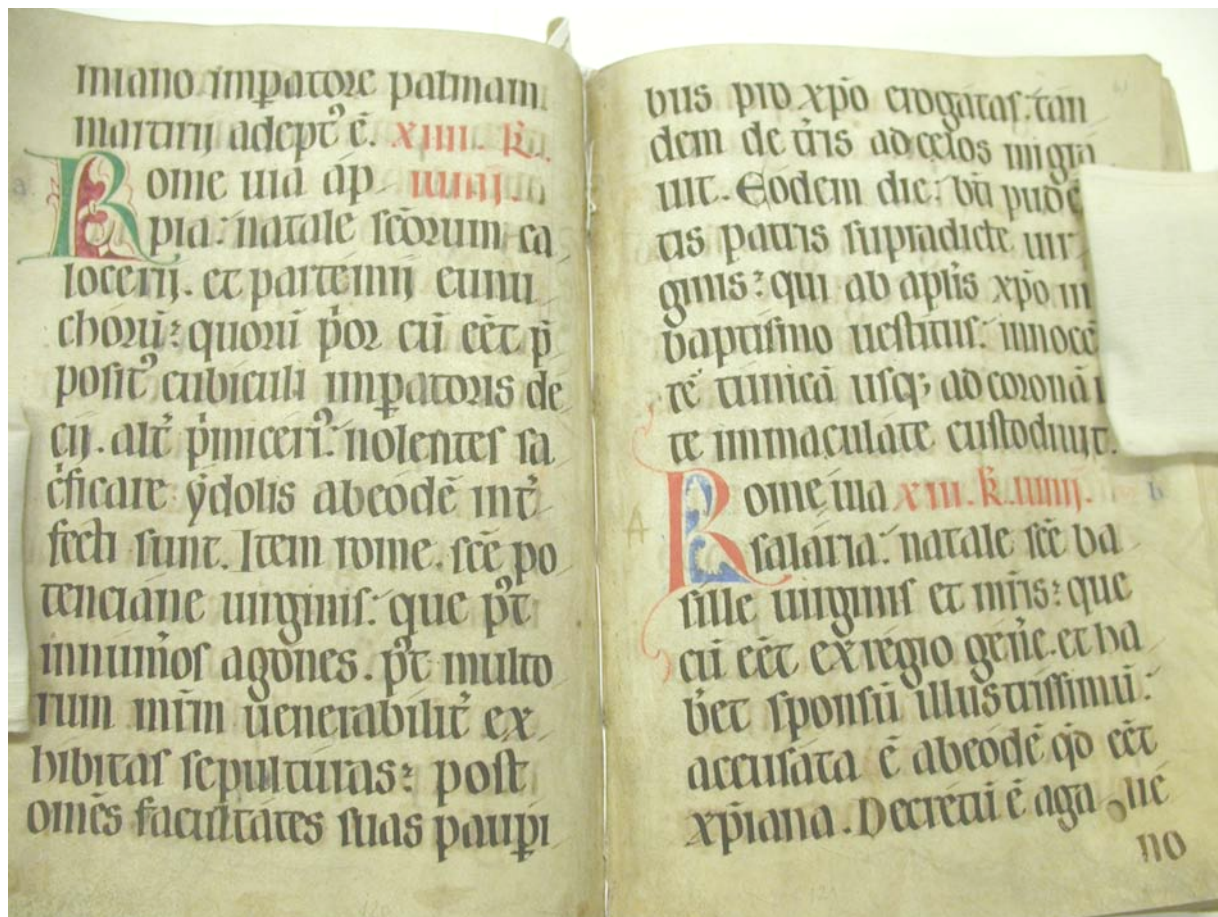 miano imꝑatore palmam
martirij adeptꝰ ē. xiiii. k̄.
Rome uia áp iunij.
pia: natale scōrum ca
locerij. et partemij eunu
chorū: quorū p̓or cū eēt p̄
positꝰ cubiculi imꝑatoris de
cij. alt̓ p̓miceriꝰ: nolentes sa
c̓ficare ẏdolis abeodē int̓
fecti sunt. Item rome. scē po
tenciane uirginis: que pꝰt
innum̓os agones. pꝰt multo
rum mr̄m uenerabilit̓ ex
hibitas sepulturas: post
om̄s facultates suas pauꝑi
bus pro xp̄o erogatas: tan
dem de t̓ris ad celos migra
uit. Eodem die: bt̄i pudē
tis patris supradicte uir
ginis: qui ab apl̄is xp̄o in
baptismo uestitus: innocē
tē tunicā usq; ad coronā
te immaculate custodiuit.
Rome uia xiii. k̄. iunij.
salaria: natale scē ba
sille uirginis et mr̄is: que
cū eēt ex regio gen̓e. et ha
b̓et sponsū illustrissimū:
accusata ē abeodē qd̓ eēt
xp̄iana. Decretū ē a ga ue
no